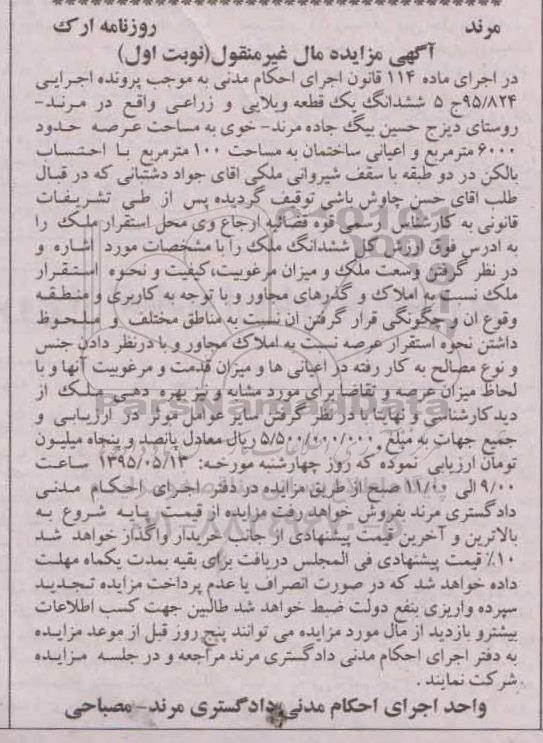 مرند روزنامه ارک
آگهی مزایده مال غیرمنقول(نوبت اول)
در اجرای ماده ۱۱۴ قانون اجرای احکام مدنی به موجب پرونده اجرایی
۹۵/۸۲۴ج ۵ ششدانگ یک قطعه ویلایی و زراعی واقع در مرند-
روستای دیزج حسین بیگ جاده مرند- خوی به مساحت عرصه حدود
۶۰۰۰ مترمربع و اعیانی ساختمان به مساحت ۱۰۰ مترمربع با احتساب
بالکن در دو طبقه با سقف شیروانی ملکی اقای جواد دشتبانی که در قبال
طلب اقای حسن چاوش باشی توقیف گردیده پس از طی تشریفات
قانونی به کارشناس رسمی قوه قضائیه ارجاع وی محل استقرار ملک را
به ادرس فوق ارزش کل ششدانگ ملک را با مشخصات مورد اشاره و
در نظر گرفتن وسعت ملک و میزان مرغوبیت،کیفیت و نحوه استقرار
ملک نسبت به املاک و گذرهای مجاور و با توجه به کاربری و منطقه
وقوع ان و چگونگی قرار گرفتن ان نسبت به مناطق مختلف و ملحوظ
داشتن نحوه استقرار عرصه نسبت به املاک مجاور و با درنظر دادن جنس
و نوع مصالح به کار رفته در اعیانی ها و میزان قدمت و مرغوبیت آنها و با
لحاظ میزان عرضه و تقاضا برای مورد مشابه و نیز بهره دهی ملک از
دید کارشناسی و نهایتا با در نظر گرفتن سایر عوامل موثر در ارزیابی و
جمیع جهات به مبلغ ۵/۵۰۰/۰۰۰/۰۰۰ ریال معادل پانصد و پنجاه میلیون
تومان ارزیابی نموده که روز چهارشنبه مورخه: ۱۳۹۵/۰۵/۱۳ ساعت
۹/۰۰ الی ۱۱/۰۰ صبح از طریق مزایده در دفتر اجرای احکام مدنی
دادگستری مرند بفروش خواهد رفت مزایده از قیمت پایه شروع به
بالاترین و آخرین قیمت پیشنهادی از جانب خریدار واگذار خواهد شد
۱۰٪ قیمت پیشنهادی فی المجلس دریافت برای بقیه بمدت یکماه مهلت
داده خواهد شد که در صورت انصراف یا عدم پرداخت مزایده تجدید
سپرده واریزی بنفع دولت ضبط خواهد شد طالبین جهت کسب اطلاعات
بیشترو بازدید از مال مورد مزایده می توانند پنج روز قبل از موعد مزایده
به دفتر اجرای احکام مدنی دادگستری مرند مراجعه و در جلسه مزایده
شرکت نمایند .
واحد اجرای احکام مدنی دادگستری مرند- مصباحی
ParsNamadData